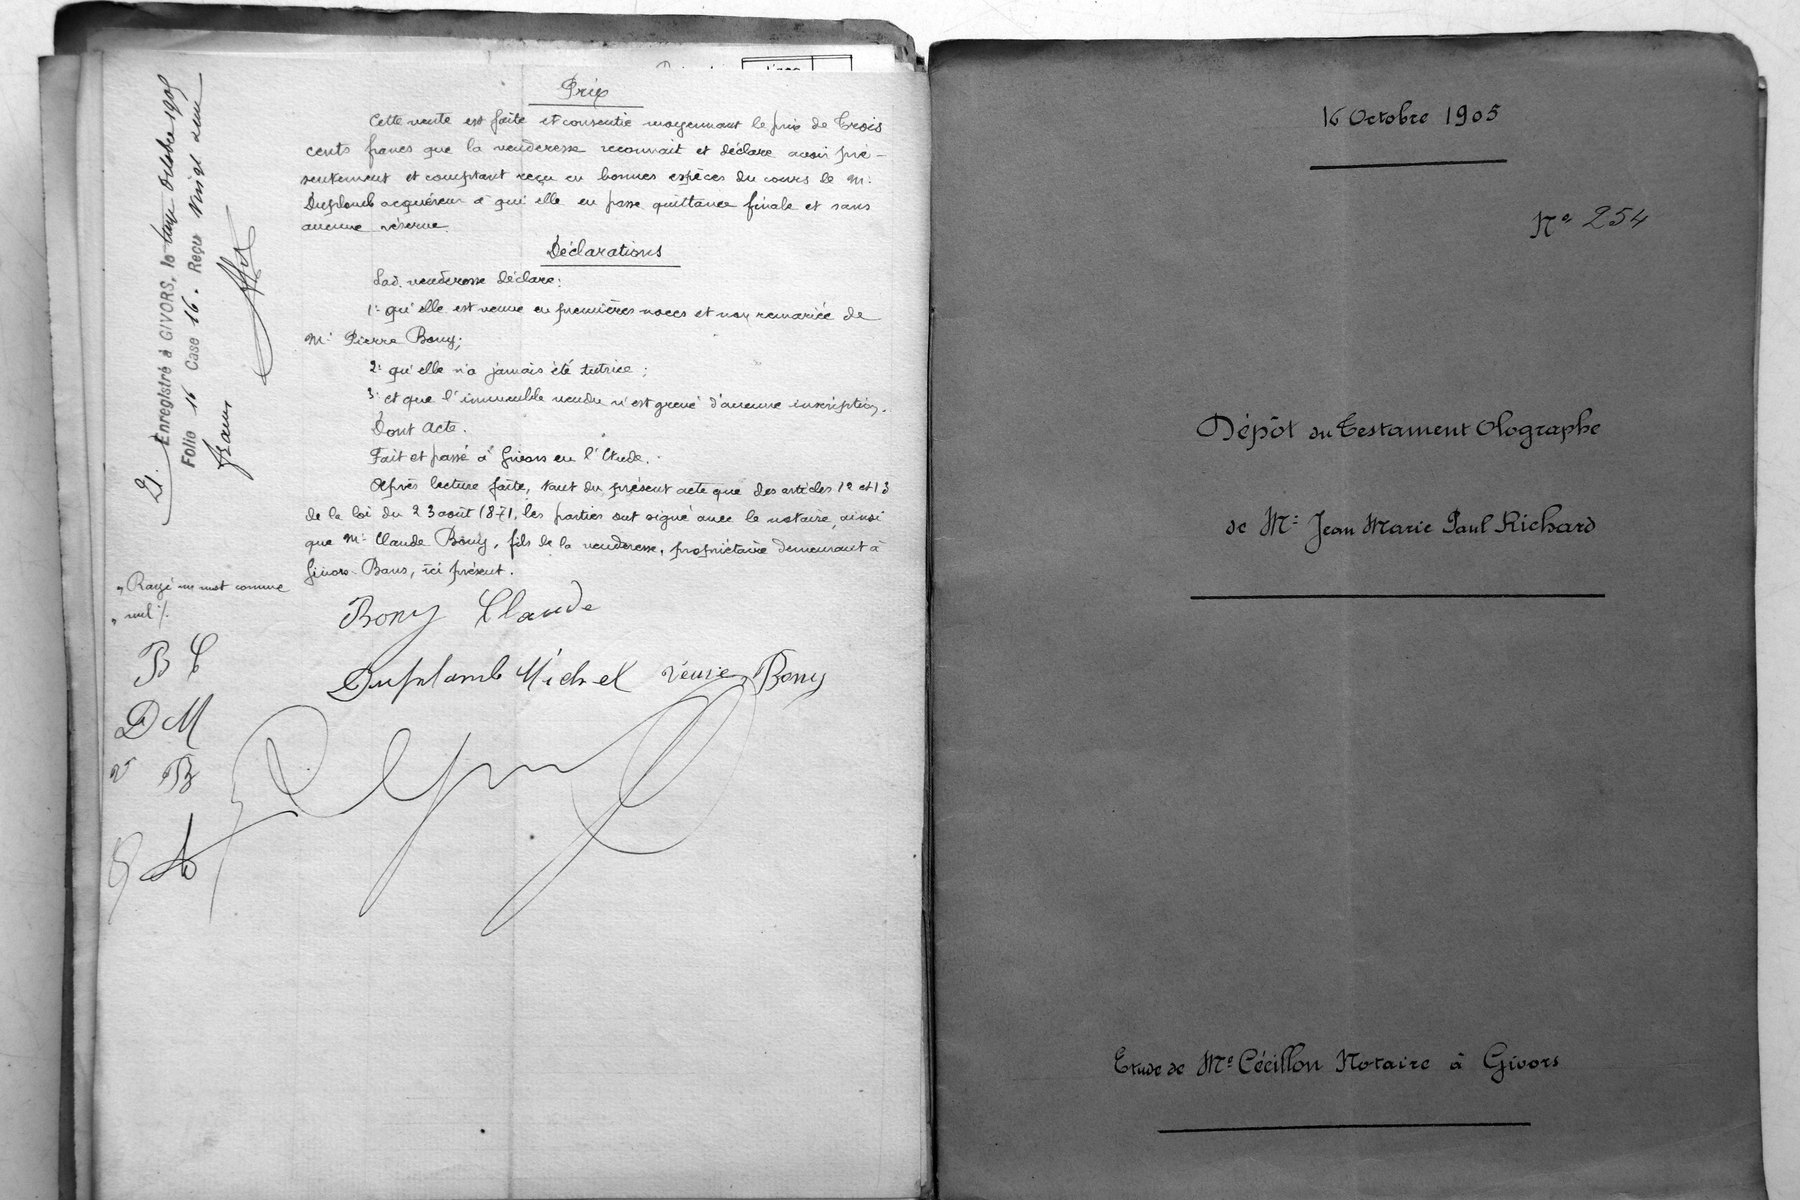 Prix
Cette vente est faite et consentie moyennant le prix de trois
cents francs que la venderesse reconnait et déclare avoir pré-
sentement et comptant reçu en bonnes espèces du cours de Mr
Duplomb acquéreur à qui elle en passe quittance finale et sans
aucune réserve.
Déclarations
Lad. venderesse déclare:
1° qu'elle est veuve en premières noces et non remariée de
Mr Pierre Bony;
2° qu'elle n'a jamais été tutrice;
3° et que l'immeuble vendu n'est grevé d'aucune inscription.
Dont Acte.
Fait et passé à Givors en l'Etude.
Après lecture faite, tant du présent acte que des articles 12 et 13
de la loi du 23 août 1871, les parties ont signé avec le notaire, ainsi
que Mr Claude Bony, fils de la venderesse, propriétaire demeurant à
Givors-Bans, ici présent.
Bony Claude
Duplomb Michel veuve Bony
21. Enregistré à GIVORS, le Octobre 1905
Folio 16 Case 16. Reçu vingt un
francs
Rayé un mot comme
nul
B C
D M
V B
16 Octobre 1905
No 254
Dépôt du Testament Olographe
de Mr Jean Marie Paul Richard
Etude de Me Cécillon Notaire à Givors